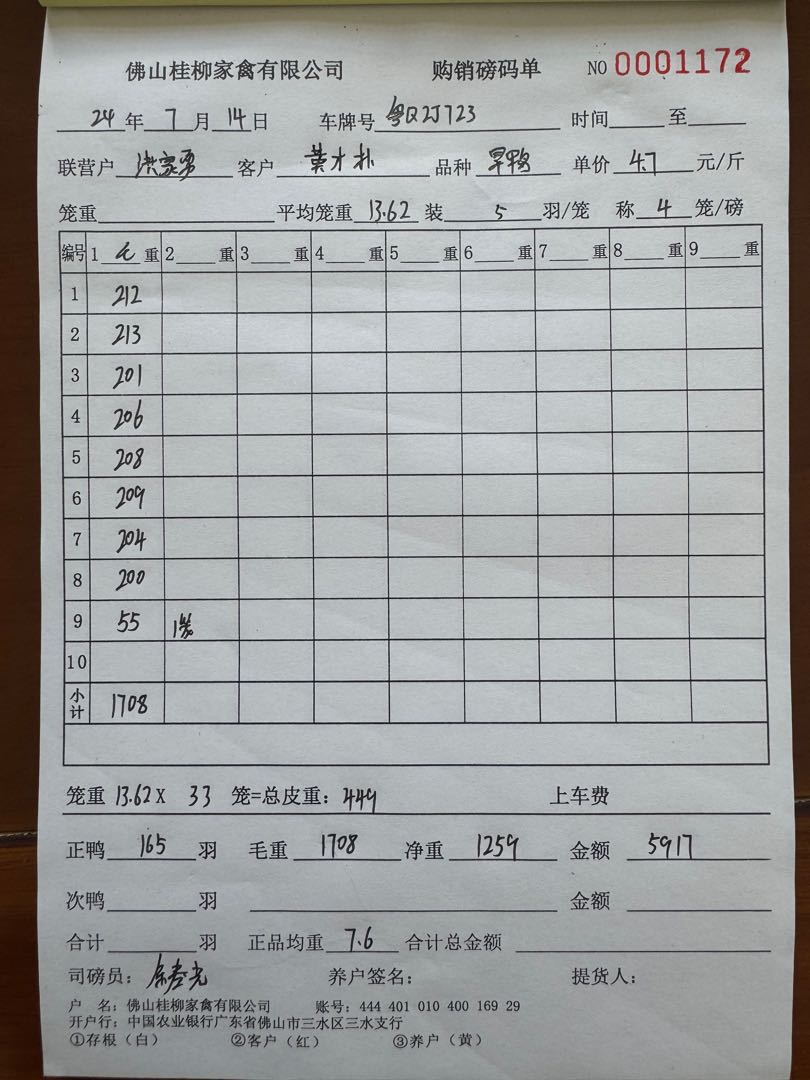 佛山桂柳家禽有限公司 购销磅码单 NO 0001172
24年7月14日 车牌号 粤Q2J723 时间 至
联营户 洪家勇 客户 黄才朴 品种 旱鸭 单价 4.7 元/斤
笼重 平均笼重 13.62 装 5 羽/笼 称 4 笼/磅
编号 1 毛 重 2 重 3 重 4 重 5 重 6 重 7 重 8 重 9 重
1 212
2 213
3 201
4 206
5 208
6 209
7 204
8 200
9 55 1笼
10
小计 1708
笼重 13.62 X 33 笼=总皮重: 449 上车费
正鸭 165 羽 毛重 1708 净重 1259 金额 5917
次鸭 羽 金额
合计 羽 正品均重 7.6 合计总金额
司磅员: 养户签名: 提货人:
户 名: 佛山桂柳家禽有限公司 账号: 444 401 010 400 169 29
开户行: 中国农业银行广东省佛山市三水区三水支行
①存根(白) ②客户(红) ③养户(黄)